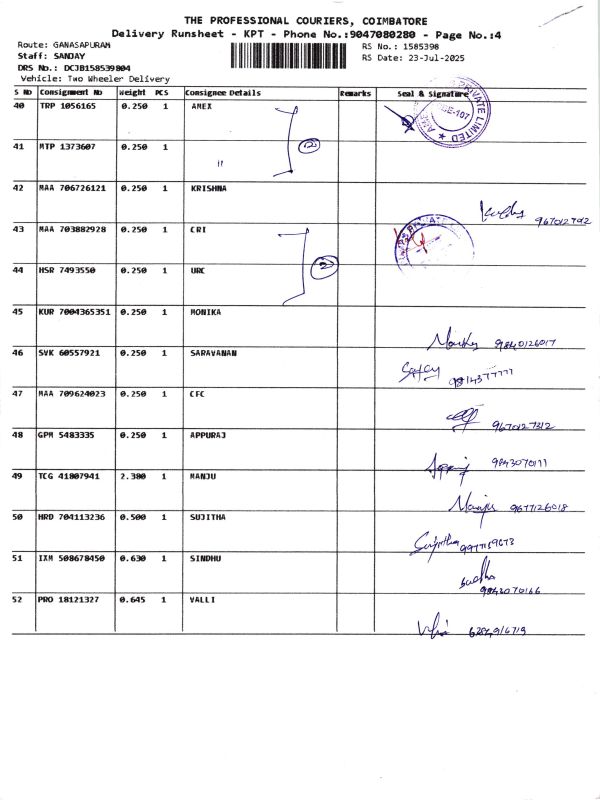 THE PROFESSIONAL COURIERS, COIMBATORE
Delivery Runsheet - KPT - Phone No.:9047080280 - Page No.:4
Route: GANASAPURAM
RS No.: 1585398
Staff: SANJAY
RS Date: 23-Jul-2025
DRS No.: DCJB158539804
Vehicle: Two Wheeler Delivery
S No Consignment No Weight PCS Consignee Details Remarks Seal & Signature
40 TRP 1056165 0.250 1 AMEX
41 MTP 1373607 0.250 1 "
42 MAA 706726121 0.250 1 KRISHNA
43 MAA 703882928 0.250 1 CRI
44 HSR 7493550 0.250 1 URC 2
45 KUR 7004365351 0.250 1 MONIKA 9840126017
46 SVK 60557921 0.250 1 SARAVANAN
47 MAA 709624023 0.250 1 CFC 9670127312
48 GPM 5483335 0.250 1 APPURAJ
49 TCG 41807941 2.380 1 MANJU 9677126018
50 HRD 704113236 0.500 1 SUJITHA
51 IXM 508678450 0.630 1 SINDHU
52 PRO 18121327 0.645 1 VALLI